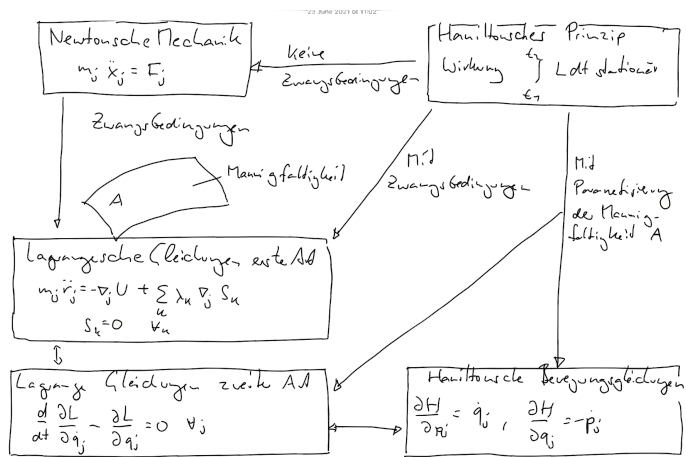 23 June 2021 at 11:02
Newtonsche Mechanik
m_j ẍ_j = F_j
Keine
Zwangsbedingungen
Hamiltonsches Prinzip
Wirkung ∫_{t_1}^{t_2} L dt stationär
Zwangsbedingungen
Mannigfaltigkeit
A
Mit
Zwangsbedingungen
Mit
Parametisierung
der Mannig-
faltigkeit A
Lagrangesche Gleichungen erste Art
m_j r̈_j = -∇_j U + Σ_k λ_k ∇_j S_k
S_k = 0 ∀_k
Lagrange Gleichungen zweite Art
d/dt ∂L/∂q̇_j - ∂L/∂q_j = 0 ∀_j
Hamiltonsche Bewegungsgleichungen
∂H/∂p_j = q̇_j , ∂H/∂q_j = -ṗ_j